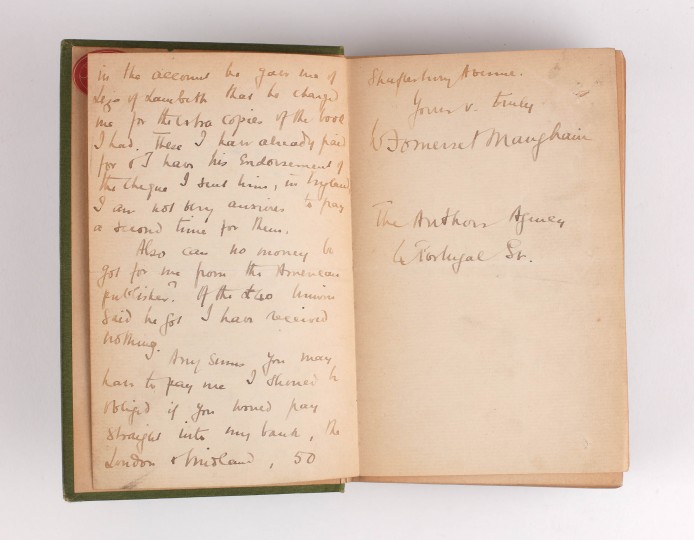 in the account he gave me of
Liza of Lambeth that he charged
me for the extra copies of the book
I had. These I have already paid
for & I have his Endorsement of
the cheque I sent him, in England
I am not very anxious to pay
a second time for them.
Also can no money be
got for me from the American
publisher? Of the £20 Unwin
said he got I have received
nothing.
Any sums you may
have to pay me I should be
obliged if you would pay
straight into my bank, the
London & Midland, 50
Shaftesbury Avenue.
Yours v. truly
W Somerset Maugham
The Authors Agency
4 Portugal St.